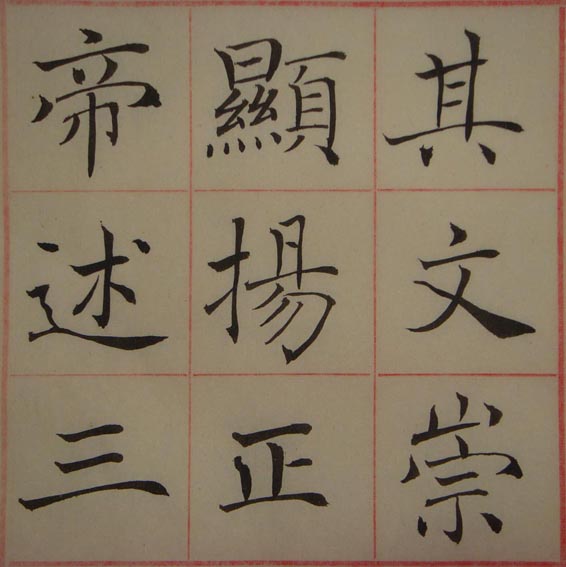 其文崇
顯揚正
帝述三